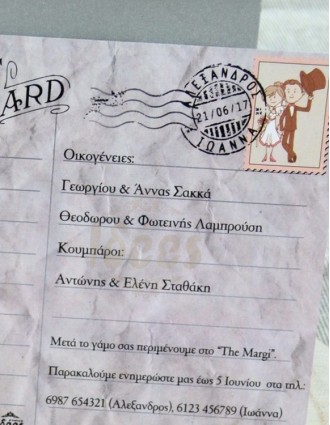 ARD
ΑΛΕΞΑΝΔΡΟΣ
21/06/17
ΙΩΑΝΝΑ
Οικογένειες:
Γεωργίου & Άννας Σακκά
Θεοδωρου & Φωτεινής Λαμπρούση
Κουμπάροι:
Αντώνης & Ελένη Σταθάκη
Μετά το γάμο σας περιμένουμε στο "The Margi".
Παρακαλούμε ενημερώστε μας έως 5 Ιουνίου στα τηλ.:
6987 654321 (Αλεξανδρος), 6123 456789 (Ιωάννα)